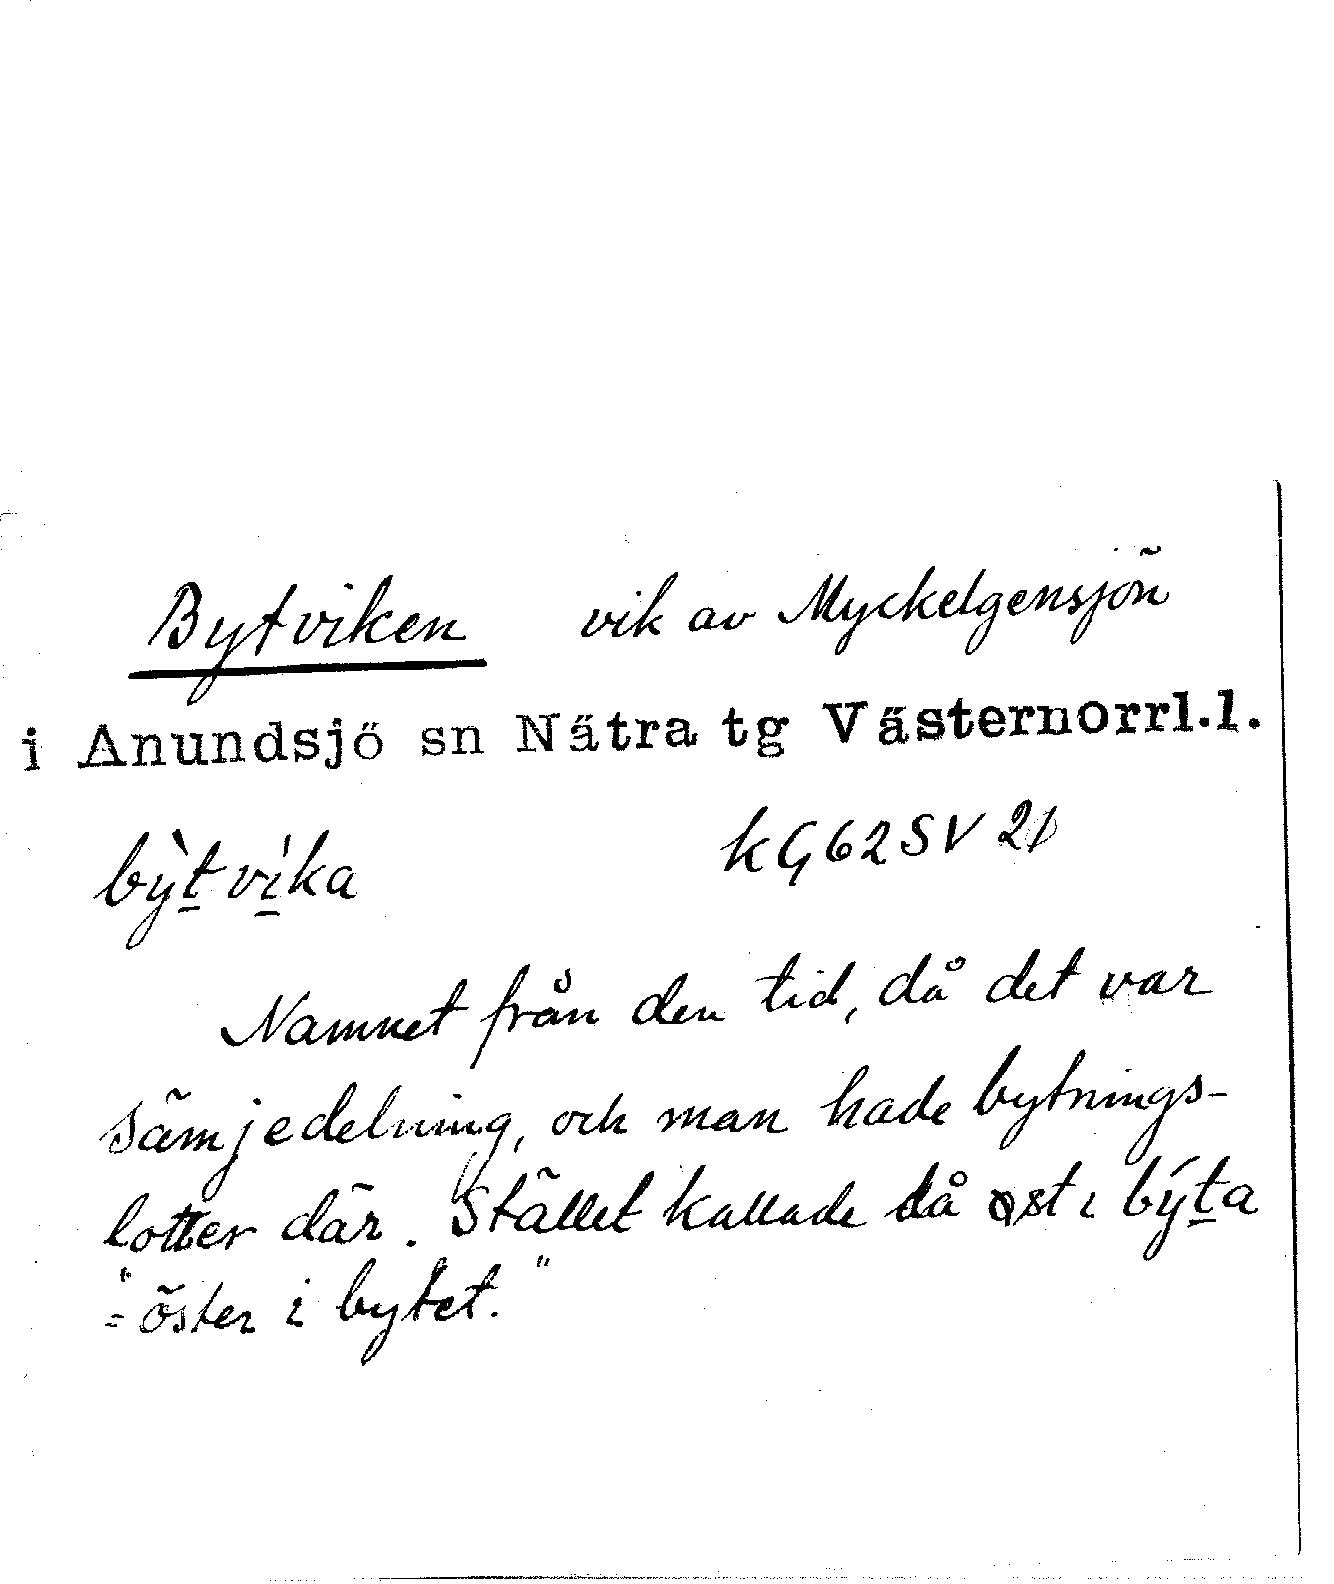 Bytviken vik av Myckelgensjön
i Anundsjö sn Nätra tg Västernorrl.l.
bỳt̲vi̲̍ka kG62SV 21
Namnet från den tid, då det var
sämjedelning, och man hade bytnings-
lotter där. Stället kallade då øst i být̲a
= "öster i bytet."